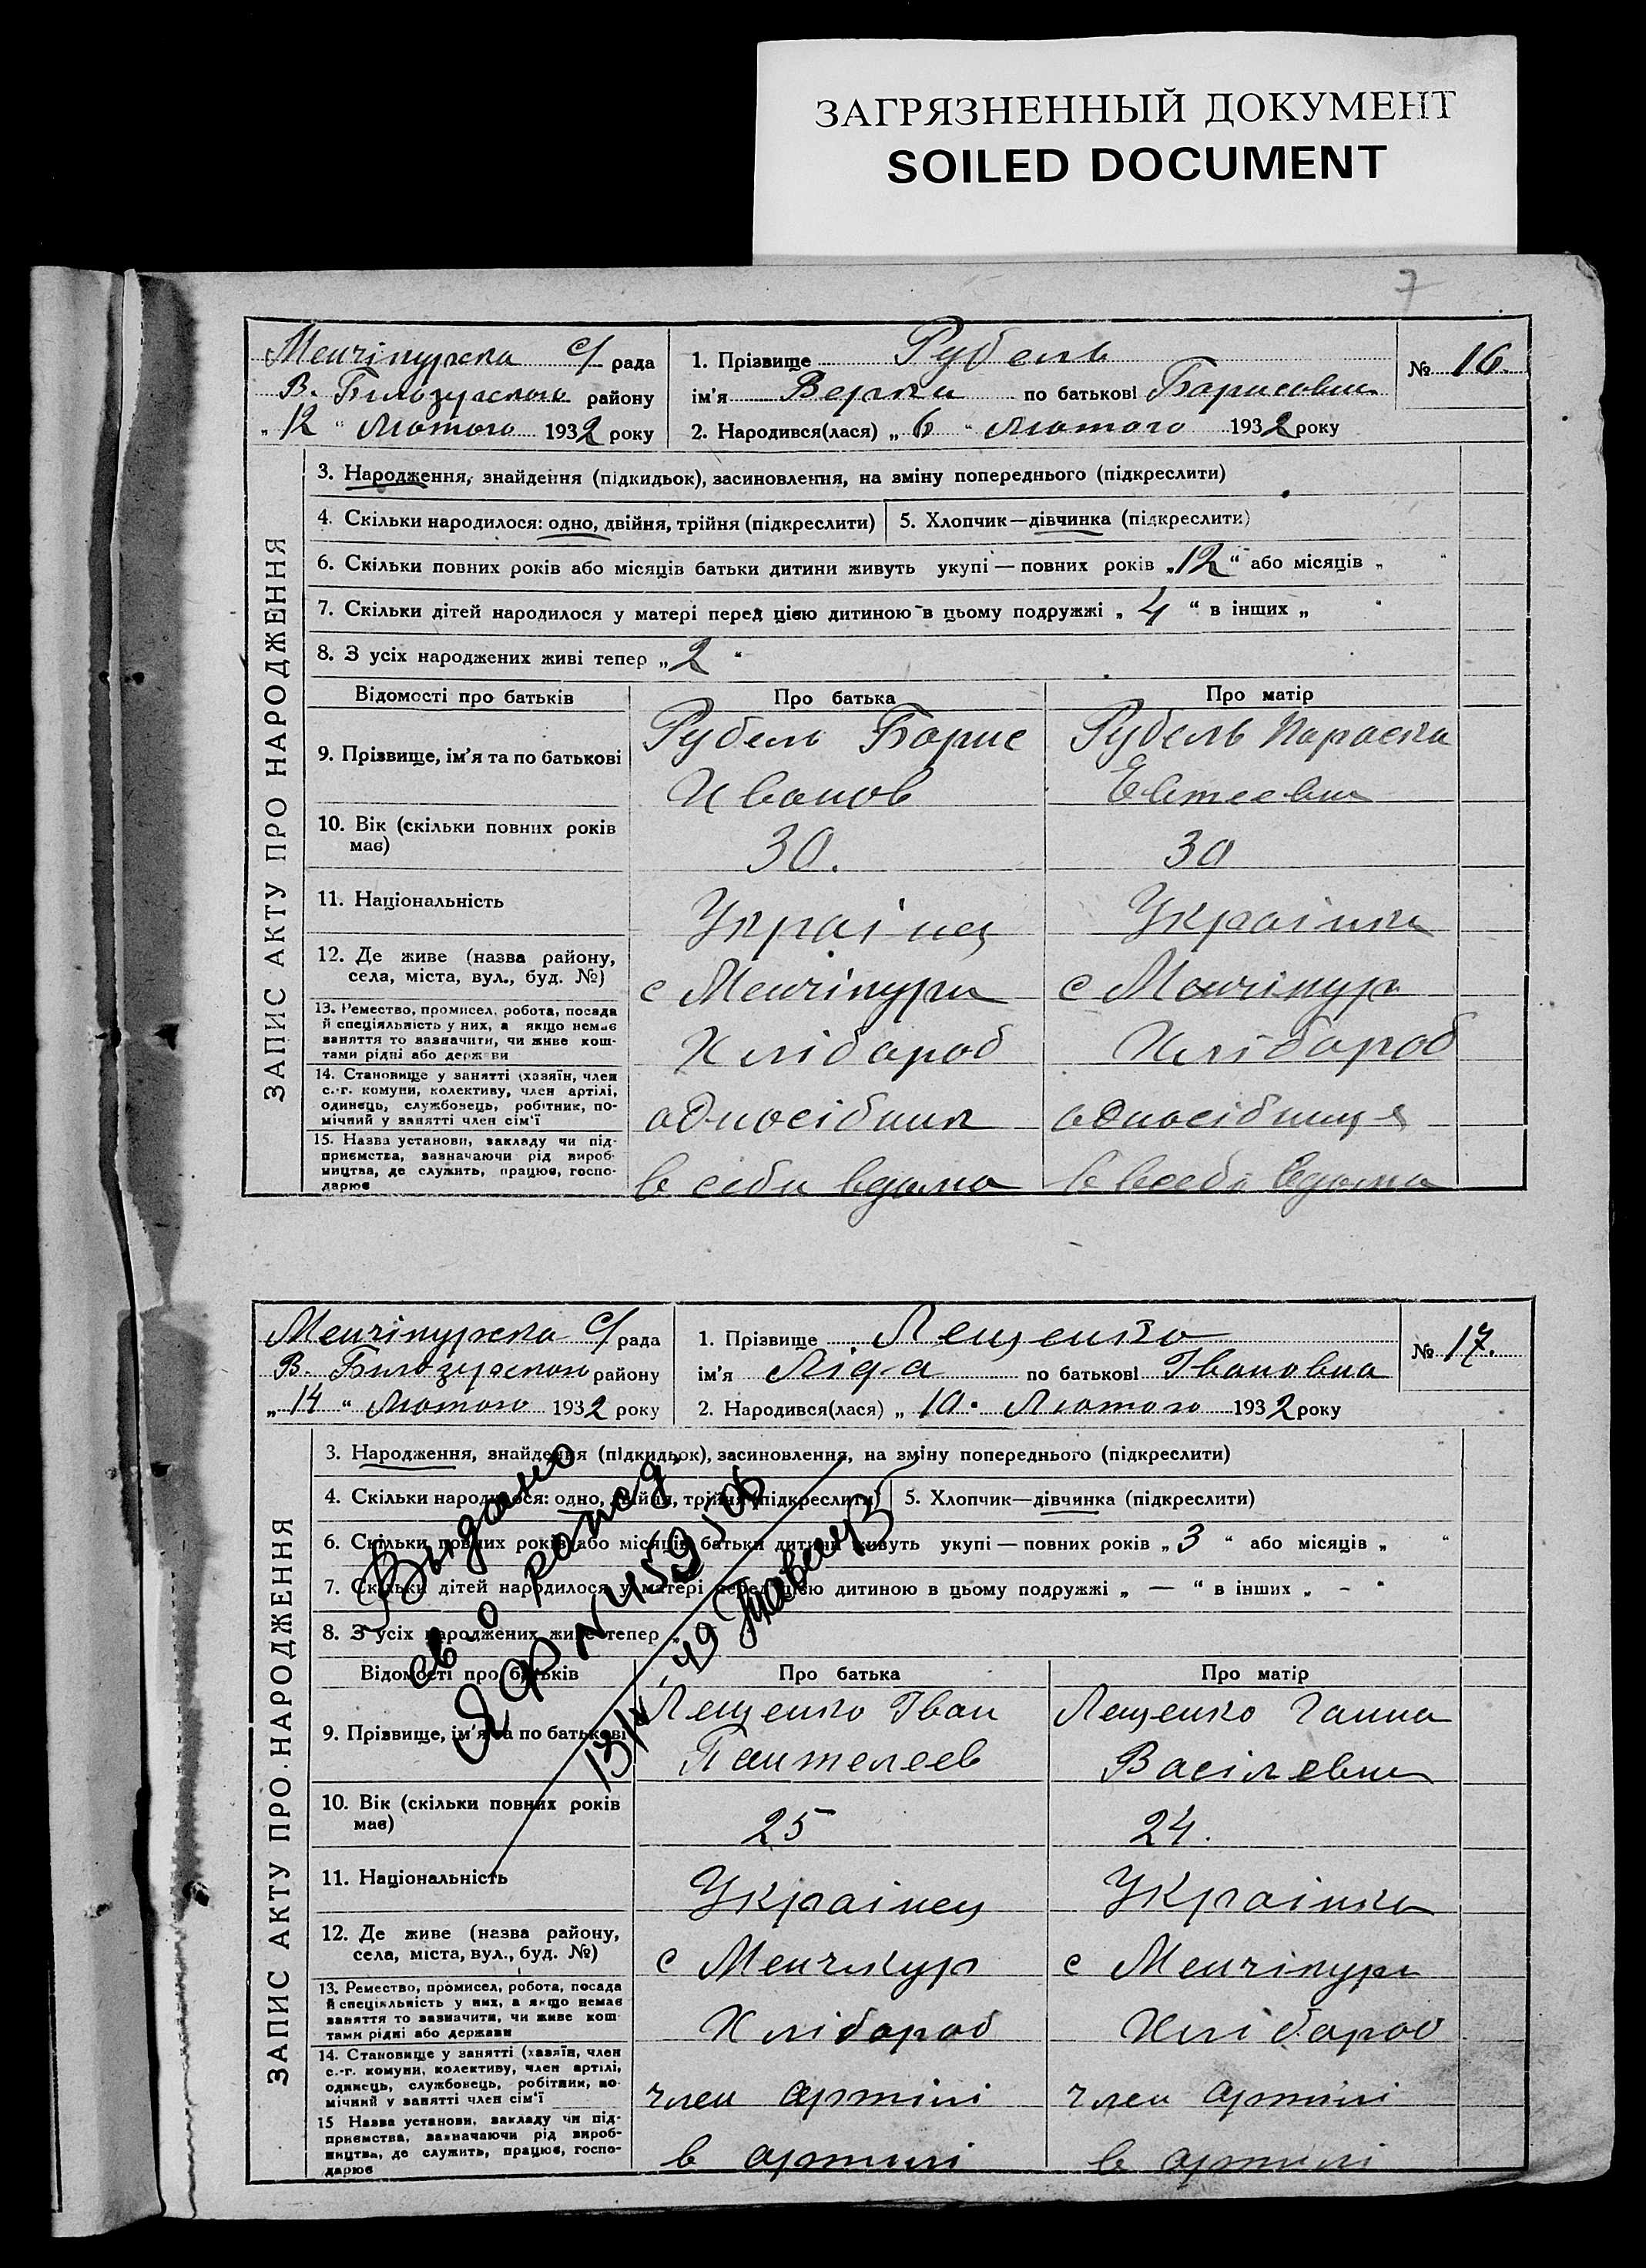 ЗАГРЯЗНЕННЫЙ ДОКУМЕНТ
SOILED DOCUMENT
7
Менчікурска с/ рада
В. Білозерского району
„ 12 “ Лютого 1932 року
1. Прізвище Рубель
ім'я Верка по батькові Борисовна
2. Народився(лася) „ 6 “ Лютого 1932 року
№ 16.
ЗАПИС АКТУ ПРО НАРОДЖЕННЯ
3. Народження, знайдення (підкидьок), засиновлення, на зміну попереднього (підкреслити)
4. Скільки народилося: одно, двійня, трійня (підкреслити)
5. Хлопчик—дівчинка (підкреслити)
6. Скільки повних років або місяців батьки дитини живуть укупі — повних років „ 12 “ або місяців „ “
7. Скільки дітей народилося у матері перед цією дитиною в цьому подружжі „ 4 “ в інших „ “
8. З усіх народжених живі тепер „ 2 “
Відомості про батьків Про батька Про матір
9. Прізвище, ім'я та по батькові
Рубель Борис
Иванов
Рубель Параска
Евтеевна
10. Вік (скільки повних років
має)
30.
30
11. Національність
Украінец
Украінка
12. Де живе (назва району,
села, міста, вул., буд. №)
с Менчікури
с Менчікур
13. Ремество, промисел, робота, посада
й спеціяльність у них, а якщо немає
заняття то зазначити, чи живе кош-
тами рідні або держави
Хлібороб
Хлібороб
14. Становище у занятті (хазяїн, член
с.-г. комуни, колективу, член артілі,
одинець, службовець, робітник, по-
мічний у занятті член сім'ї
односібник
односібниця
15. Назва установи, закладу чи під-
приємства, зазначаючи рід вироб-
ництва, де служить, працює, госпо-
дарює
в себи вдома
в себі вдома
Менчікурска с/ рада
В. Білозерского району
„ 14 “ Лютого 1932 року
1. Прізвище Лещенко
ім'я Ліда по батькові Івановна
2. Народився(лася) „ 10. Лютого 1932 року
№ 17.
ЗАПИС АКТУ ПРО НАРОДЖЕННЯ
3. Народження, знайдення (підкидьок), засиновлення, на зміну попереднього (підкреслити)
4. Скільки народилося: одно, двійня, трійня (підкреслити)
5. Хлопчик—дівчинка (підкреслити)
6. Скільки повних років або місяців батьки дитини живуть укупі — повних років „ 3 “ або місяців „ “
7. Скільки дітей народилося у матері перед цією дитиною в цьому подружжі „ — “ в інших „ - “
8. З усіх народжених живі тепер „
Выдано
св-о
ЯФ №
Відомості про батьків Про батька Про матір
9. Прізвище, ім'я та по батькові
Лещенко Іван
Пантелеев
Лещенко Ганна
Васілевна
10. Вік (скільки повних років
має)
25
24.
11. Національність
Украінец
Украінка
12. Де живе (назва району,
села, міста, вул., буд. №)
с Менчикур
с Менчікури
13. Ремество, промисел, робота, посада
й спеціяльність у них, а якщо немає
заняття то зазначити, чи живе кош-
тами рідні або держави
Хлібороб
Хлібороб
14. Становище у занятті (хазяїн, член
с.-г. комуни, колективу, член артілі,
одинець, службовець, робітник, по-
мічний у занятті член сім'ї
член артілі
член артілі
15 Назва установи, закладу чи під-
приємства, зазначаючи рід вироб-
ництва, де служить, працює, госпо-
дарює
в артилі
в артилі